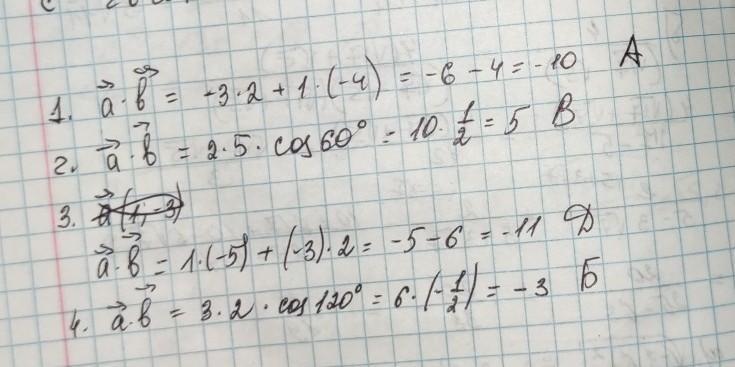 1. a⃗·b⃗ = -3·2+1·(-4) = -6-4=-10 А
2. a⃗·b⃗ = 2·5·cos60° = 10·1/2=5 В
3. a⃗(1;-3)
a⃗·b⃗ = 1·(-5)+(-3)·2= -5-6 =-11 Д
4. a⃗·b⃗ = 3·2·cos120°=6·(-1/2)=-3 Б